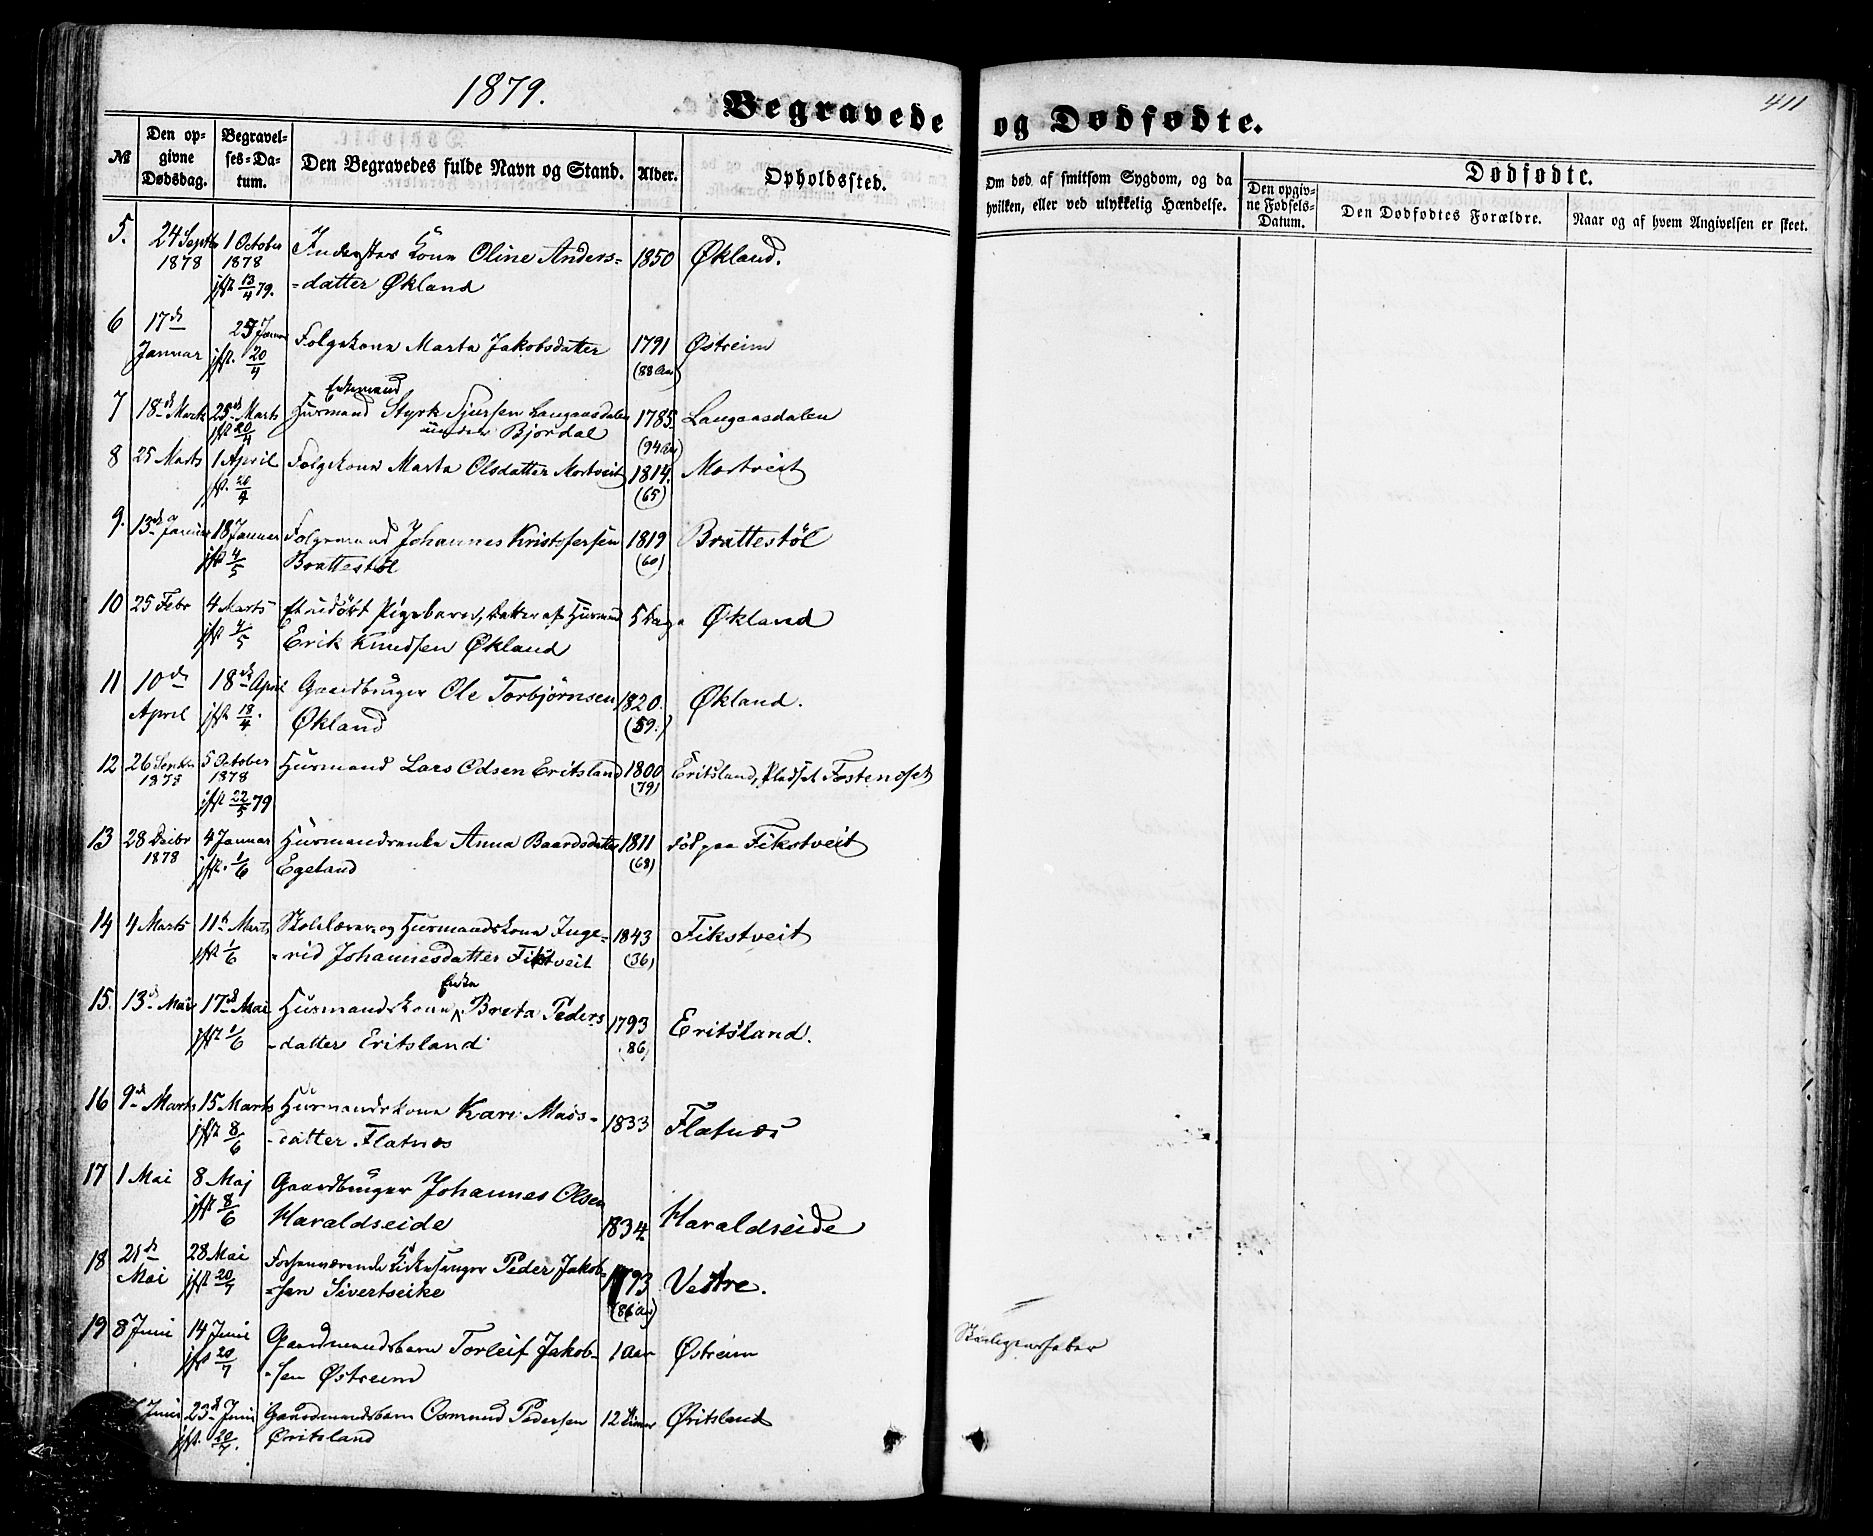 1879.
Begravede og Dødfødte.
411
№
Den opgivne Dødsdag.
Begravelses-Datum.
Den Begravedes fulde Navn og Stand.
Alder.
Opholdssted.
Om død af smitsom Sygdom, og da hvilken, eller ved ulykkelig Hændelse.
Dødfødte.
Den opgivne Fødsels-Datum.
Den Dødfødtes Forældre.
Naar og af hvem Angivelsen er skeet.
5. 24 Septbr 1 October Kone Oline Anders= 1850 Økland.
1878 1878 =datter Økland
jfst 13/4 79.
6 17de 25 Januar Folgekone Marta Jakobsdatter 1791 Østreim
Januar jfst. 20/4 (88 Aar)
Enkemand
7 18de Marts 25de Marts Husmand Styrk Sjursen Langaasdalen 1785 Langaasdalen
jfst 20/4 under Bjordal (94 Aar)
8 25 Marts 1 April Folgekone Marta Olsdatter Mortveit 1814. Mortveit
jfst. 20/4 (65)
9. 13de Januar 18 Januar Folgemand Johannes Kristofersen 1819 Brattestöl
jfst 4/5 Brattestøl (60)
10 25 Febr 4 Marts Et udöbt Pigebarn, Datter af Husmand 5 Dage Økland
jfst 4/5 Erik Knudsen Økland
11 10de 18de April Gaardbruger Ole Torbjørnsen 1820. Økland.
April jfst 18/4. Økland (59.)
12 26 Septbr 5 October Husmand Lars Odsen Eritsland 1800 Eritsland, Pladset
1878 1878 (79)
jfst 22/5 79
13 28 Decbr 4 Januar Husmandsenke Anna Baardsdatter 1811 Fikstveit
1878 jfst. 1/6 Egeland (68)
14 4 Marts 11te Marts Skolelærer og Husmandskone Inge= 1843 Fikstveit
jfst 1/6 =rid Johannesdatter Fikstveit (36)
Enke
15. 13de Mai 17de Mai Husmandskone Breta Peders 1793 Eritsland.
jfst 1/6 =datter Eritsland (86)
16 9de Marts 15 Marts Husmandskone Kari Mads= 1833 Flatnæs
jfst 8/6 =datter Flatnæs
17 1 Mai 8 Maj Gaardbruger Johannes Olsen
jfst 8/6 Haraldseide 1834. Haraldseide
18 21de 28 Mai Forhenværende Kirkesanger Peder Jakob= 1793 Vestre.
Mai jfst 20/7 =sen Sivertseike (86 Aar)
19 8 Juni 14 Juni Gaardmandsbarn Torleif Jakob= 1 Aar Østreim
jfst 20/7 =sen Østreim
Juni 23de Juni Gaardmandsbarn Osmund Pedersen 12 Timer Øritsland
jfst. 20/7. Øritsland